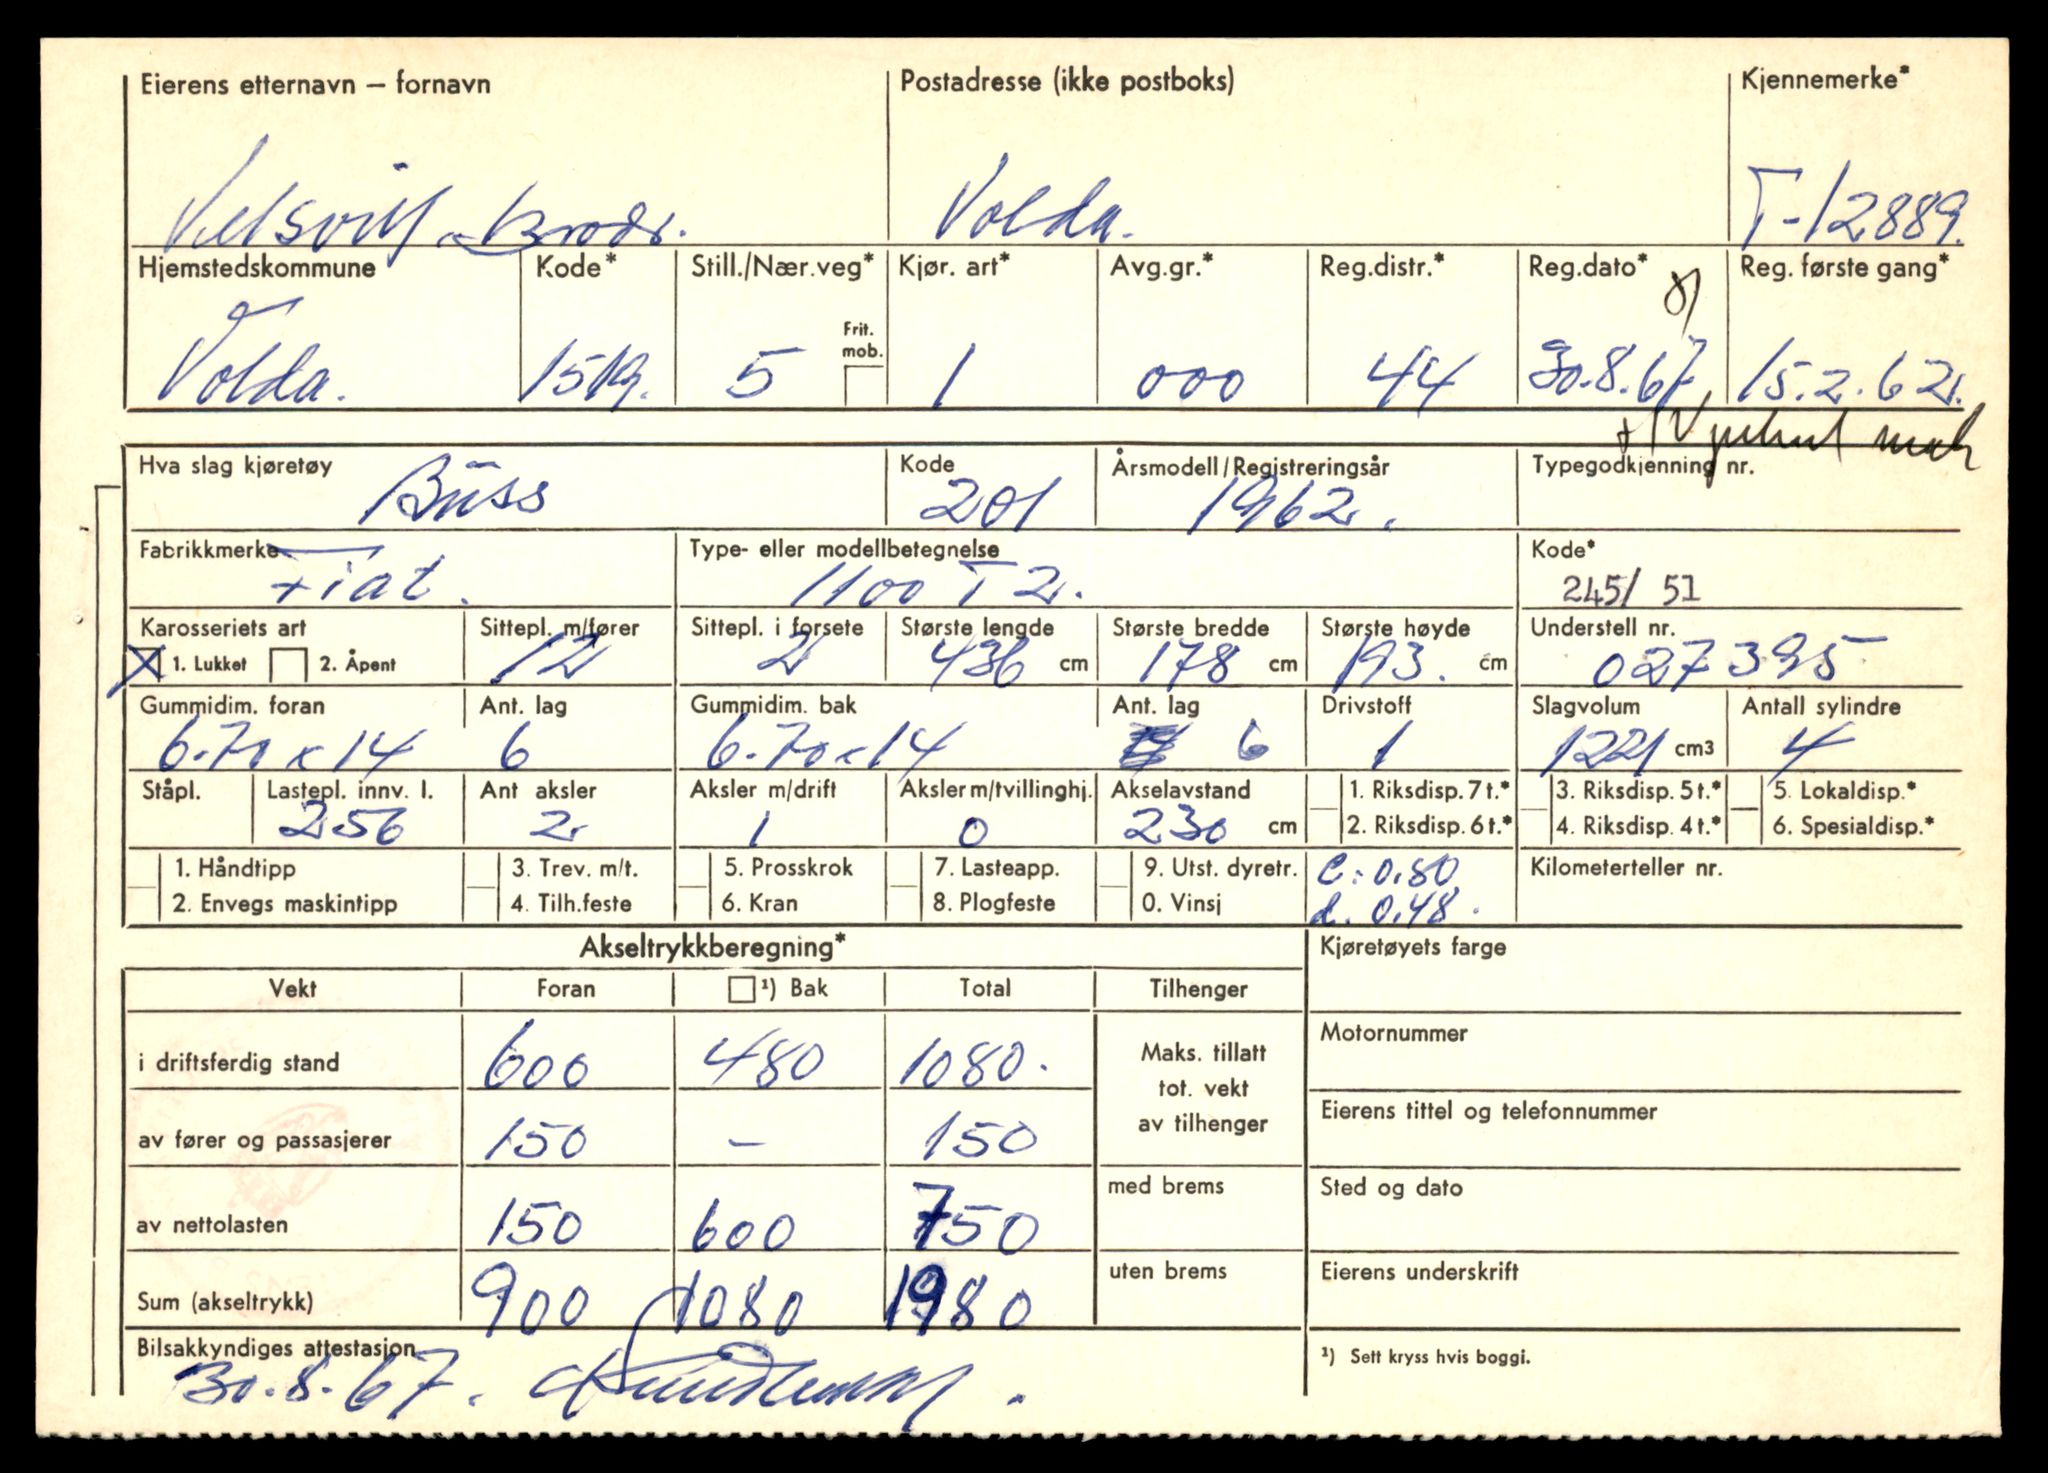 Eierens etternavn – fornavn Postadresse (ikke postboks) Kjennemerke*
Brødr. Volda. T-12889.
Hjemstedskommune Kode* Still./Nær.veg* Kjør. art* Avg.gr.* Reg.distr.* Reg.dato* Reg. første gang*
Frit. mob.
Volda. 1519. 5 1 000 44 30.8.67 15.2.62.
Hva slag kjøretøy Kode Årsmodell/Registreringsår Typegodkjenning nr.
Buss 201 1962.
Fabrikkmerke Type- eller modellbetegnelse Kode*
Fiat. 1100 T 2. 245/ 51
Karosseriets art Sittepl. m/fører Sittepl. i forsete Største lengde Største bredde Største høyde Understell nr.
X 1. Lukket 2. Åpent 12 2 436 cm 178 cm 193. cm 027395
Gummidim. foran Ant. lag Gummidim. bak Ant. lag Drivstoff Slagvolum Antall sylindre
6.70 x 14 6 6.70 x 14 6 1 1221 cm3 4
Ståpl. Lastepl. innv. l. Ant aksler Aksler m/drift Aksler m/tvillinghj. Akselavstand 1. Riksdisp. 7 t.* 3. Riksdisp. 5 t.* 5. Lokaldisp.*
256 2 1 0 230 cm 2. Riksdisp. 6 t.* 4. Riksdisp. 4 t.* 6. Spesialdisp.*
1. Håndtipp 3. Trev. m/t. 5. Prosskrok 7. Lasteapp. 9. Utst. dyretr. C: 0.80 Kilometerteller nr.
2. Envegs maskintipp 4. Tilh.feste 6. Kran 8. Plogfeste 0. Vinsj d. 0.48.
Akseltrykkberegning* Kjøretøyets farge
Vekt Foran ¹) Bak Total Tilhenger
i driftsferdig stand 600 480 1080. Maks. tillatt tot. vekt av tilhenger Motornummer
av fører og passasjerer 150 – 150 Eierens tittel og telefonnummer
av nettolasten 150 600 750 med brems Sted og dato
Sum (akseltrykk) 900 1080 1980 uten brems Eierens underskrift
Bilsakkyndiges attestasjon ¹) Sett kryss hvis boggi.
30.8.67.